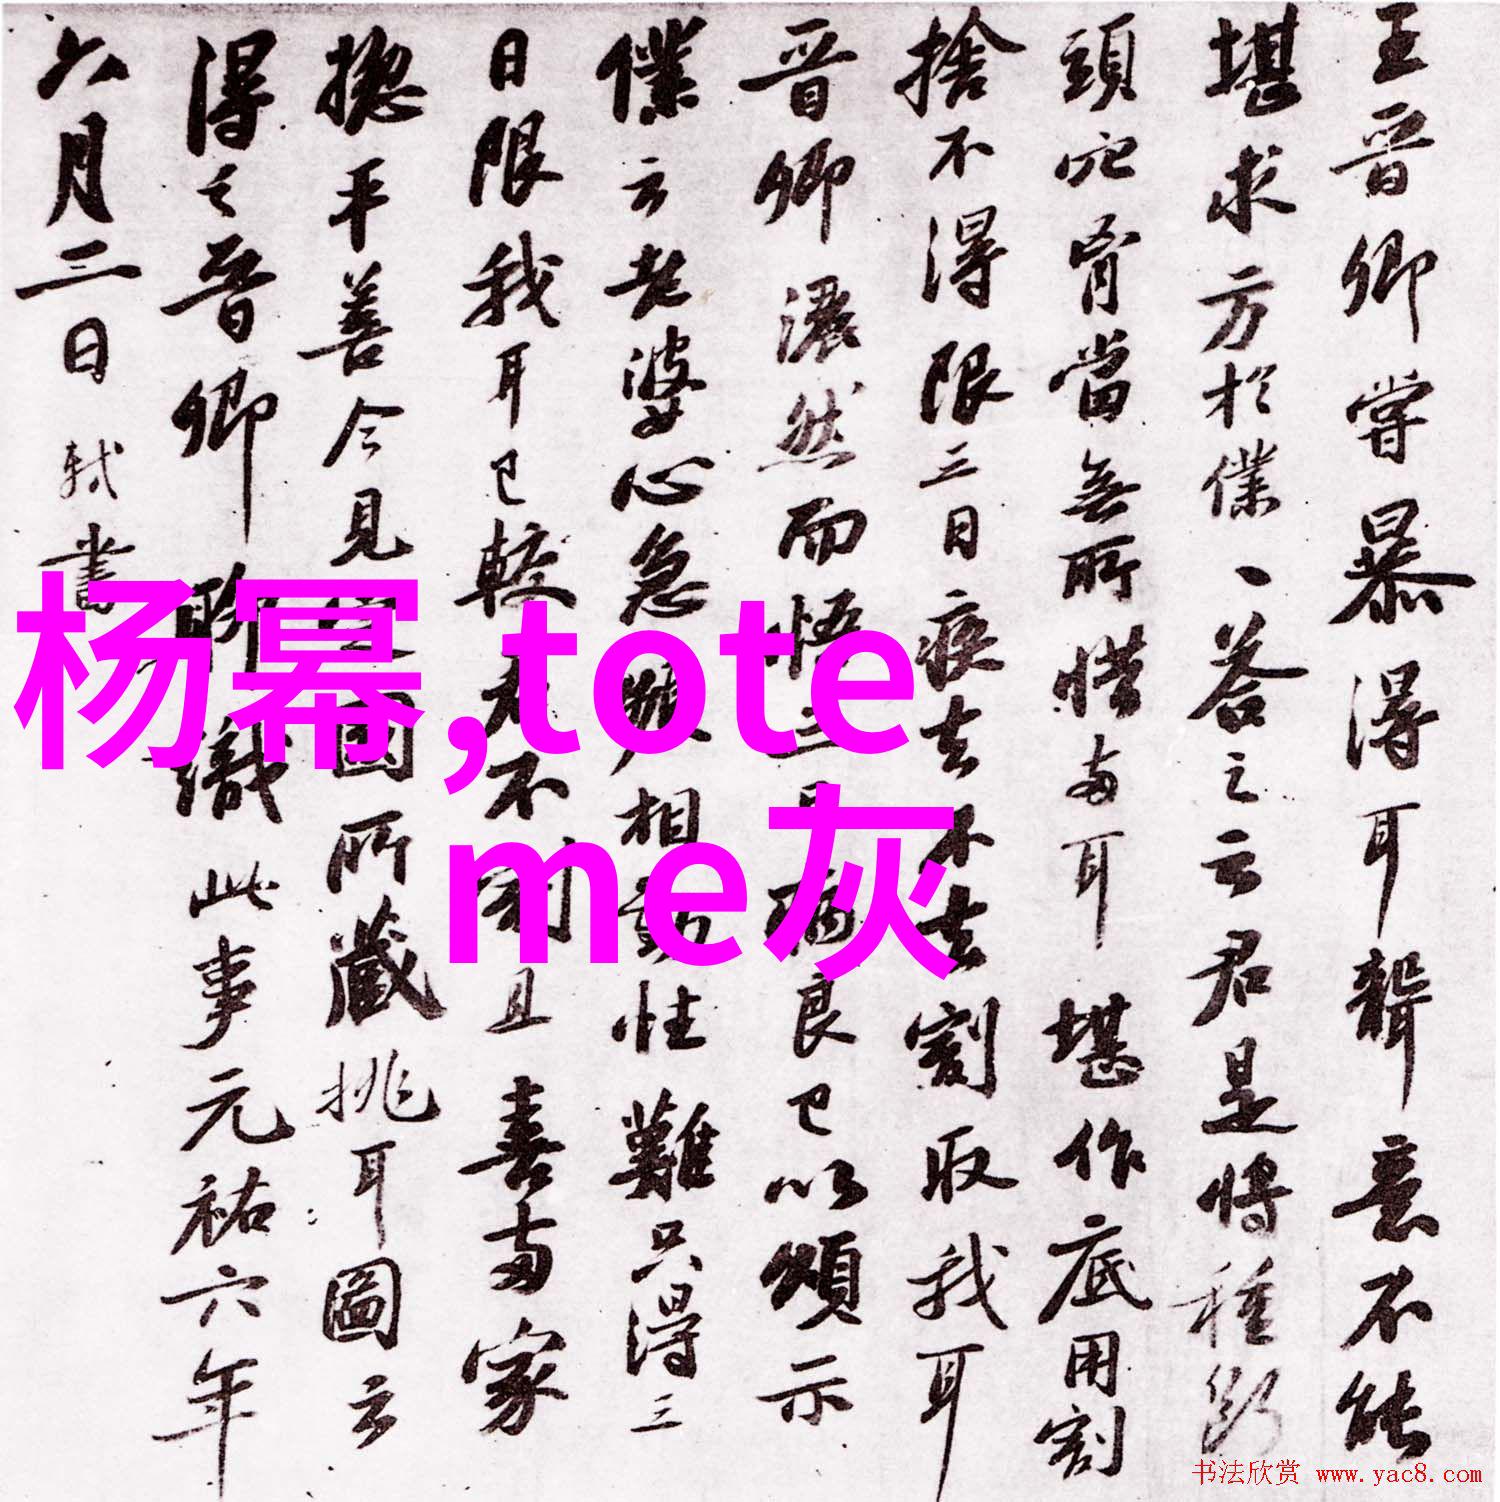 王晋卿嘗暴得耳聾意不能
堪求方於僕僕答之云君是將種斷
頭穴胷當無所惜兩耳堪作底用割
捨不得限三日疾去不去割取我耳
晋卿灑然而悟三日病良已以頌示
僕云老婆心急頻相勸性難只得三
日限我耳已較君不割且喜兩家
揔平善今見定國所藏挑耳圖云
得之晋卿聊識此事元祐六年
六月三日軾書
杨幂,tote
me灰
书法欣赏 www.yac8.com